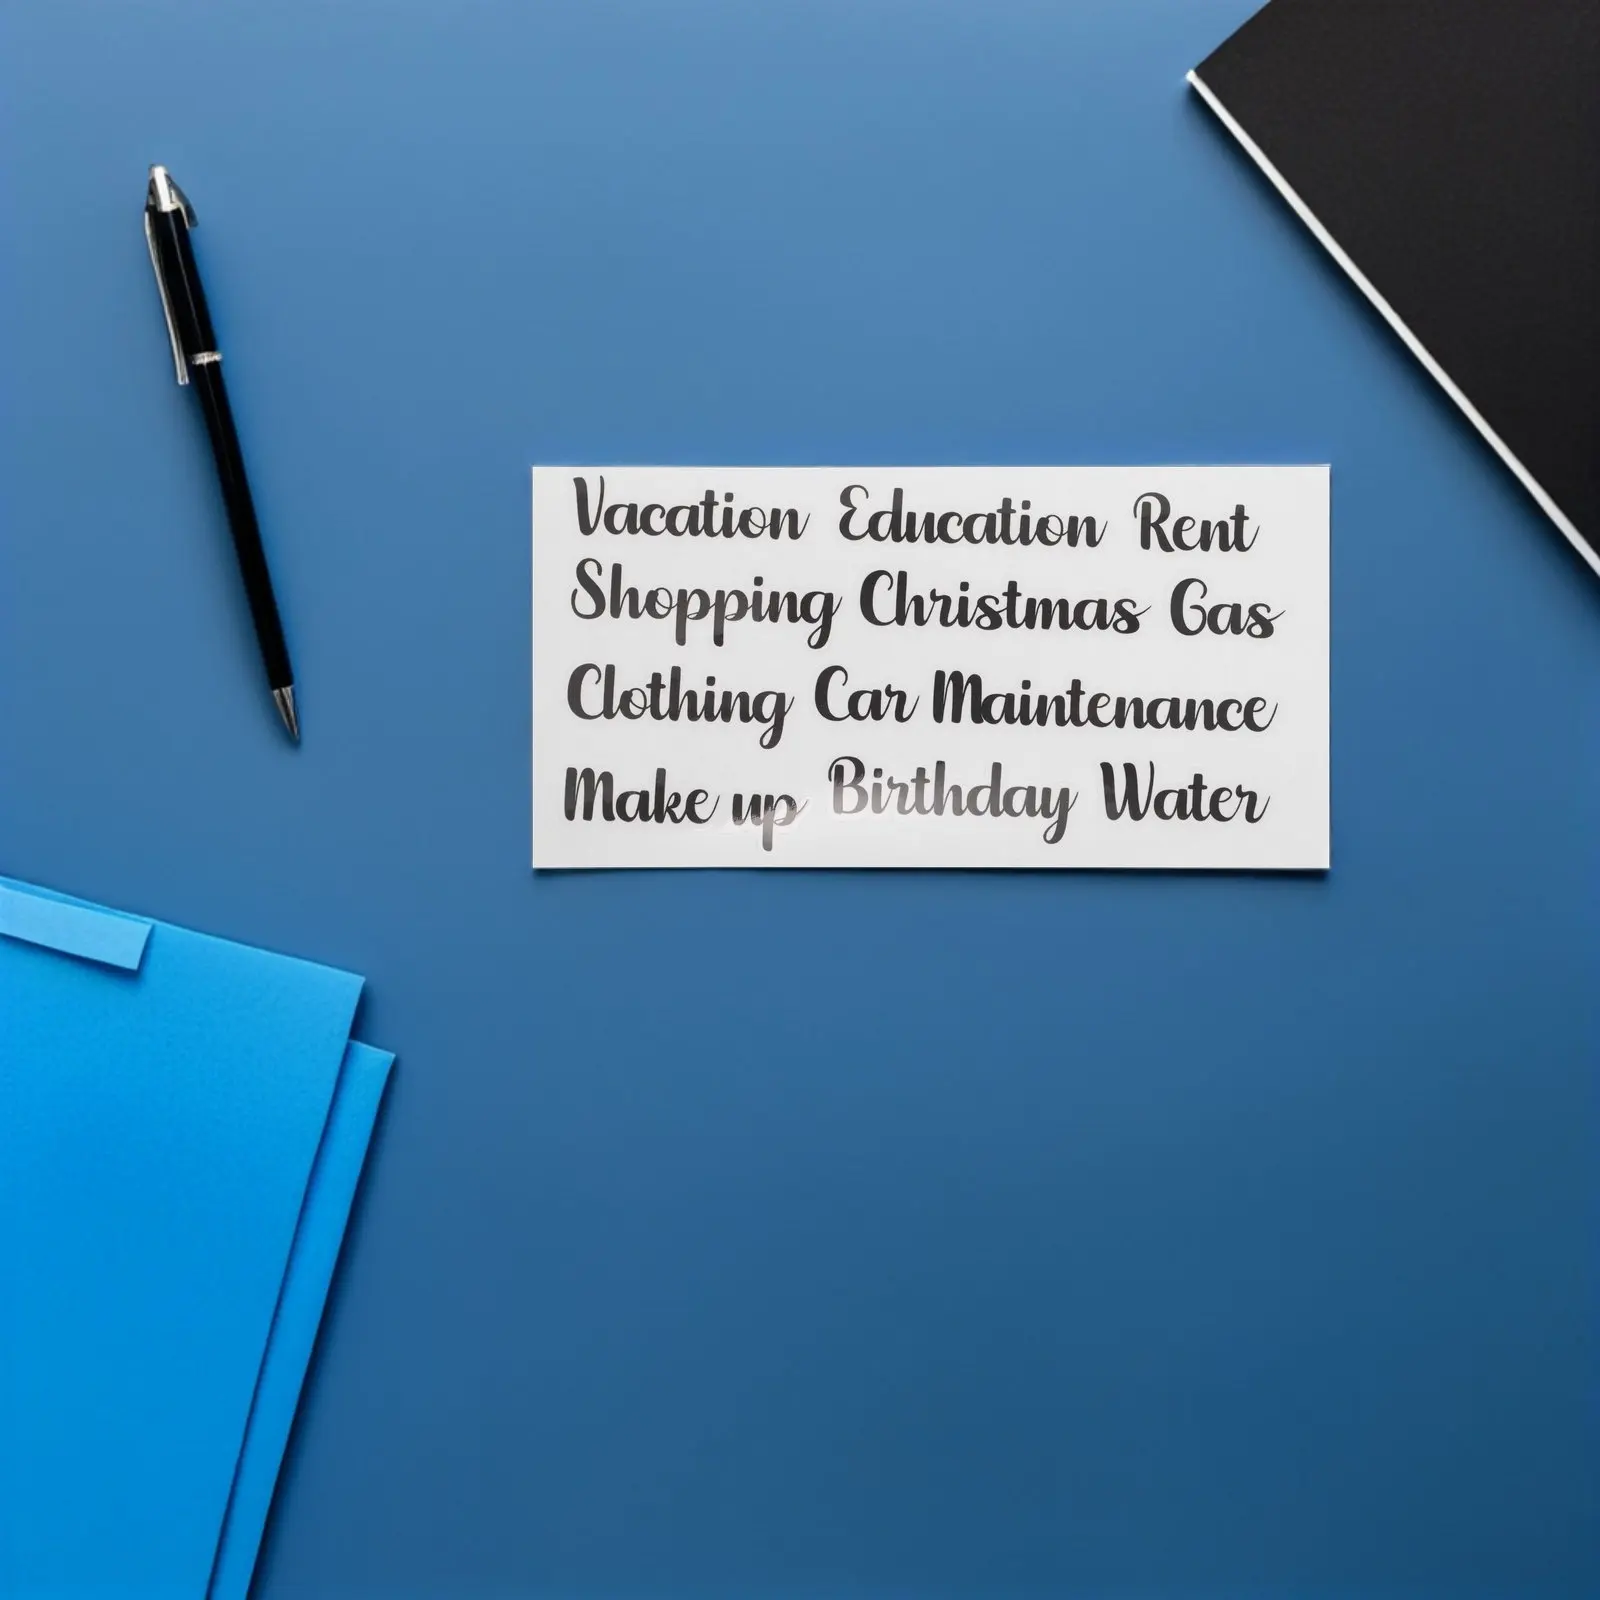 Vacation Education Rent
Shopping Christmas Gas
Clothing Car Maintenance
Make up Birthday Water